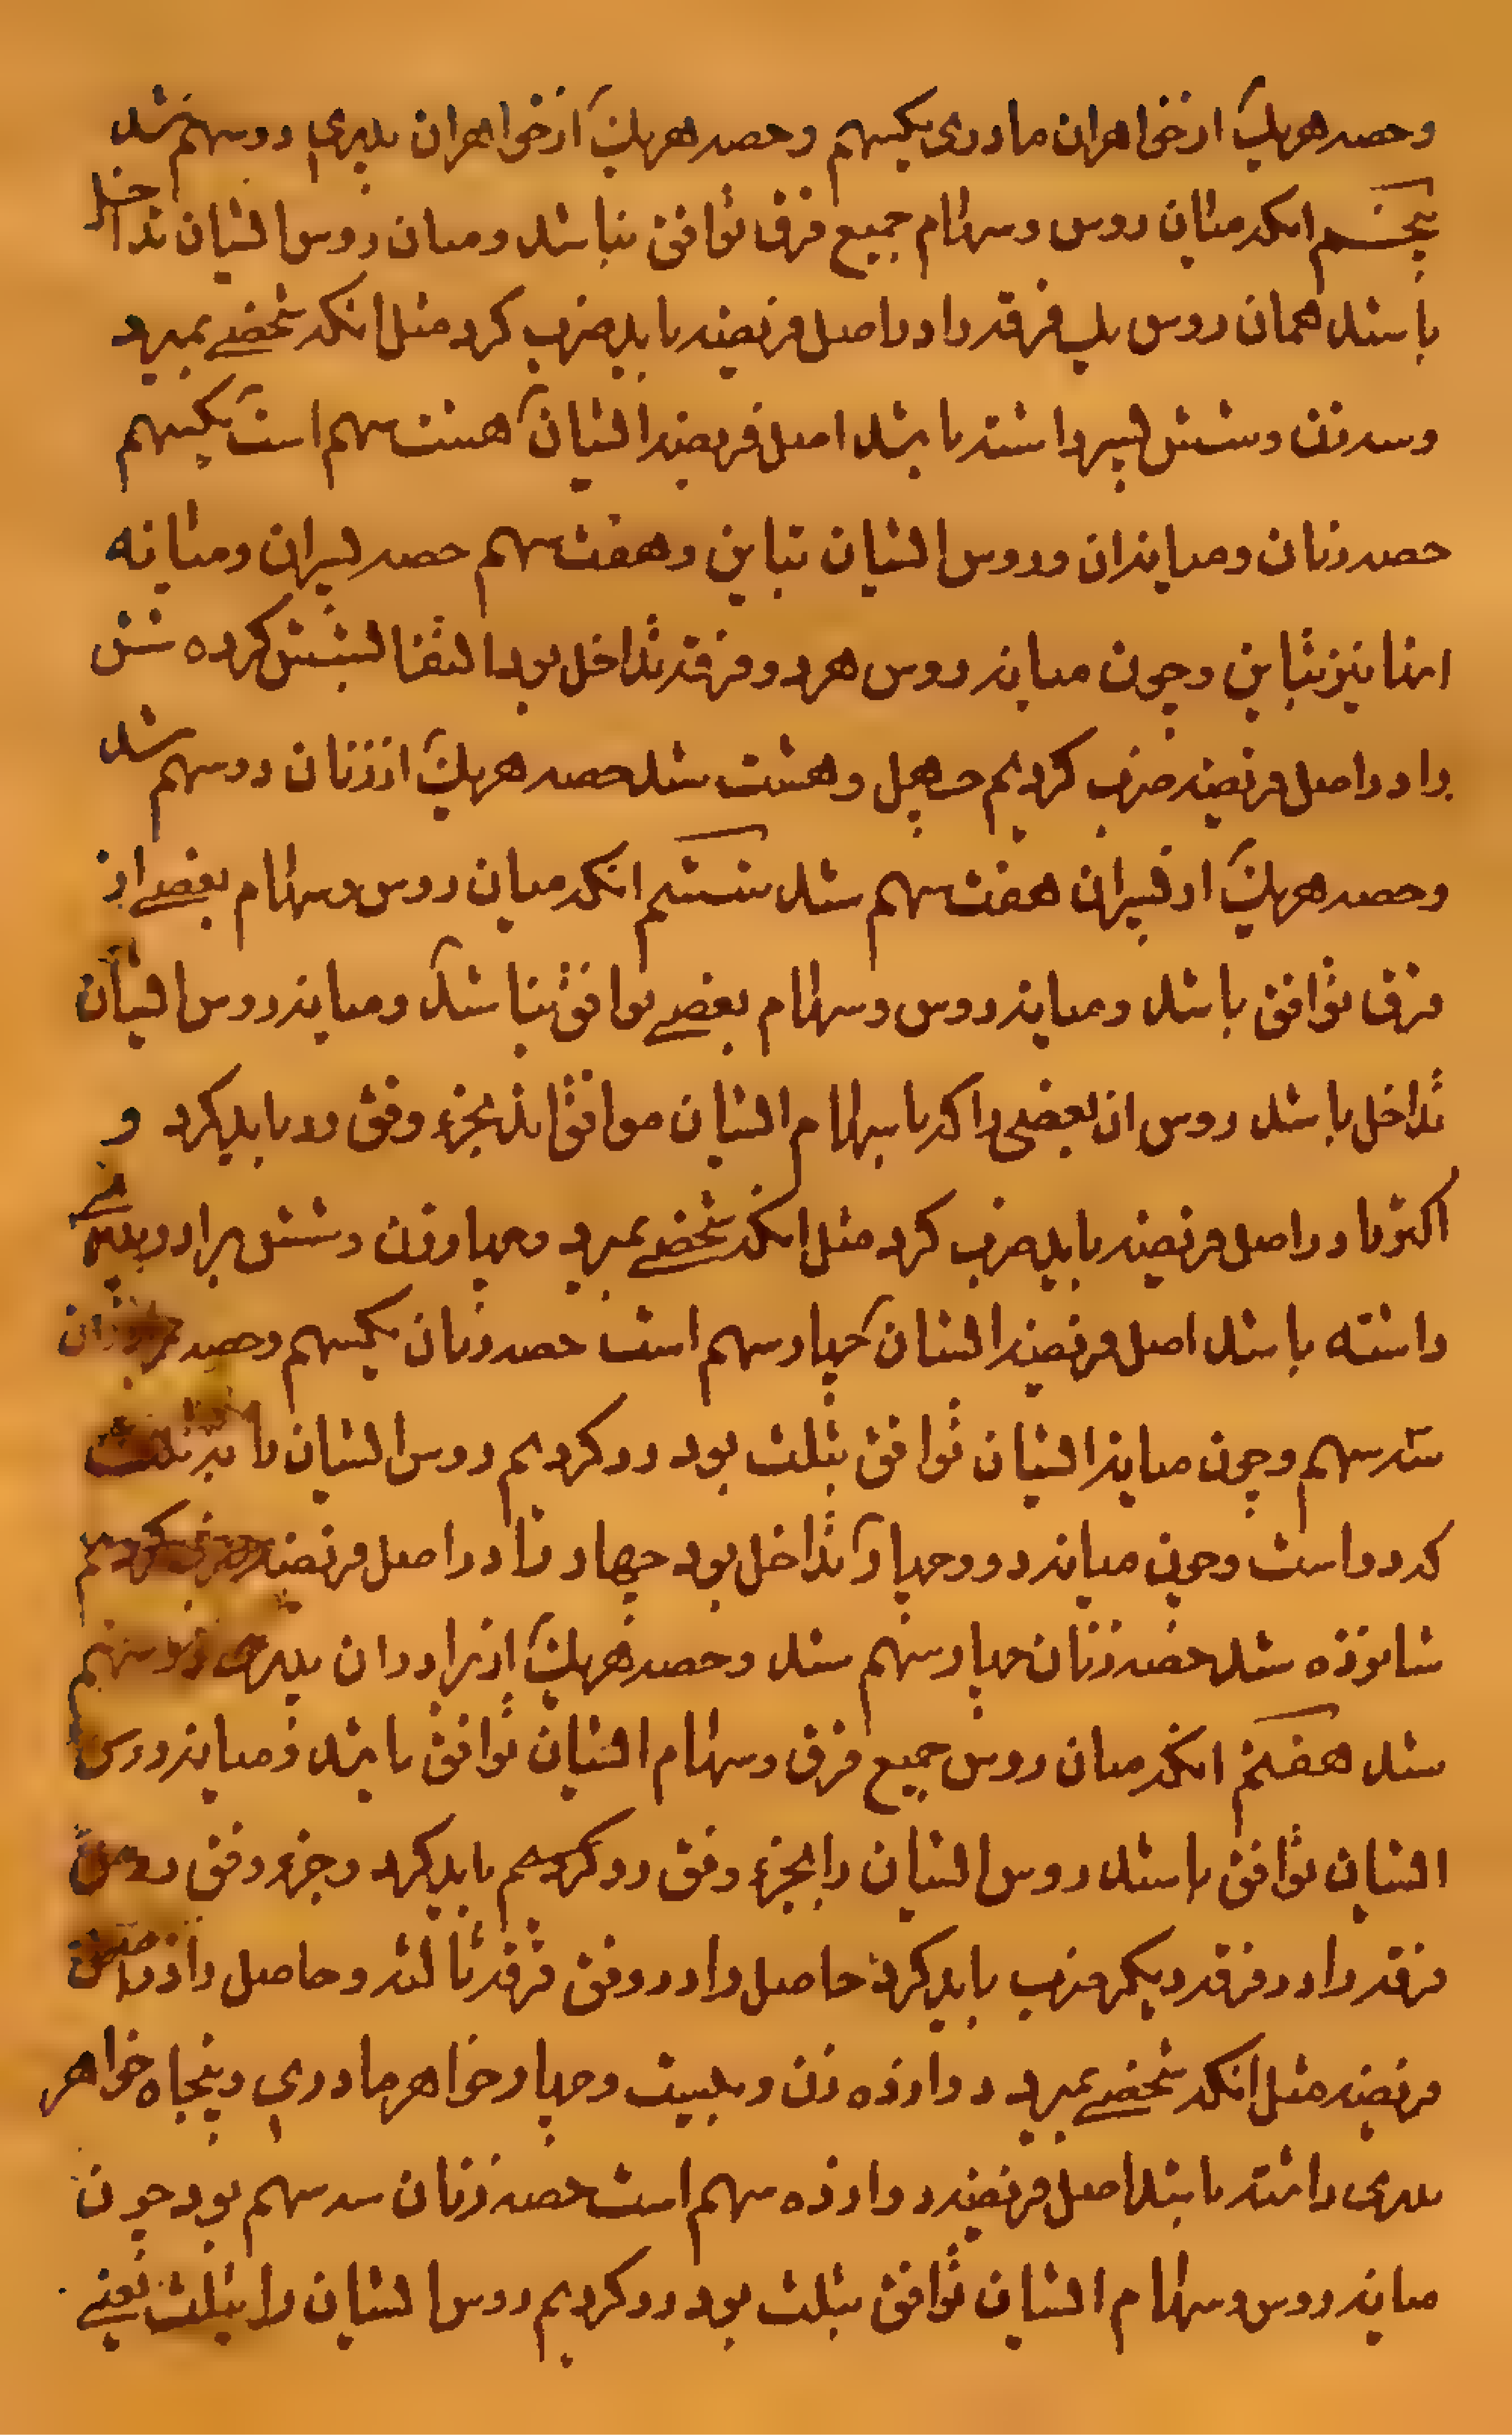 وحصه هریک از خواهران مادری یکسهم وحصه هریک از خواهران پدری دو سهم شد
پنجم انکه میان روس وسهام جمیع فرق توافق نباشد ومیان روس ایشان تداخل
باشد همان روس یک فرقه را در اصل فریضه باید ضرب کرد مثل انکه شخصے بمیرد
وسه زن وشش پسر داشته باشد اصل فریضه ایشان هشت سهم است یکسهم
حصه زنان ومیانه ان وروس ایشان تباین وهفت سهم حصه پسران ومیانه
اینها نیز تباین وچون میانه روس هر دو فرقه تداخل بود اکتفا بشش کرده شش
را در اصل فریضه ضرب کردیم چهل وهشت شد حصه هریک از زنان دو سهم شد
وحصه هریک از پسران هفت سهم شد ششم انکه میان روس وسهام بعضے از
فرق توافق باشد ومیانه روس وسهام بعضے توافق نباشد ومیانه روس ایشان
تداخل باشد روس ان بعضی را که با سهام ایشان موافق‌اند بجزء وفق رد باید کرد و
اکثر را در اصل فریضه باید ضرب کرد مثل انکه شخصے بمیرد وچهار زن وشش برادر پدرے
داشته باشد اصل فریضه ایشان چهار سهم است حصه زنان یکسهم وحصه برادران
سه سهم وچون میانه ایشان توافق بثلث بود رد کردیم روس ایشان را بثلث
که دو است وچون میانه دو وچهار تداخل بود چهار را در اصل فریضه ضرب کردیم
شانزده شد حصه زنان چهار سهم شد وحصه هریک از برادران پدری دو سهم
شد هفتم انکه میان روس جمیع فرق وسهام ایشان توافق باشد ومیانه روس
ایشان توافق باشد روس ایشان را بجزء وفق رد کردیم باید کرد وجزء وفق روس
فرقه را در فرقه دیگر ضرب باید کرد حاصل را در وفق فرقه ثالثه وحاصل را در اصل
فریضه مثل انکه شخصے بمیرد دوازده زن وبیست وچهار خواهر مادری وپنجاه خواهر
پدری داشته باشد اصل فریضه دوازده سهم است حصه زنان سه سهم بود چون
میانه روس وسهام ایشان توافق بثلث بود رد کردیم روس ایشان را بثلث یعنے